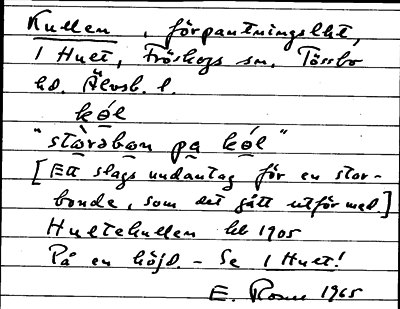 Kullen, förpantningslht,
1 Hult, Fröskogs sn. Tössbo
hd. Älvsb. l.
kól
"stòrəbon pa kól"
[Ett slags undantag för en stor-
bonde, som det gått utför med.]
Hultekullen hl 1905
På en höjd. - Se 1 Hult!
E. 1965